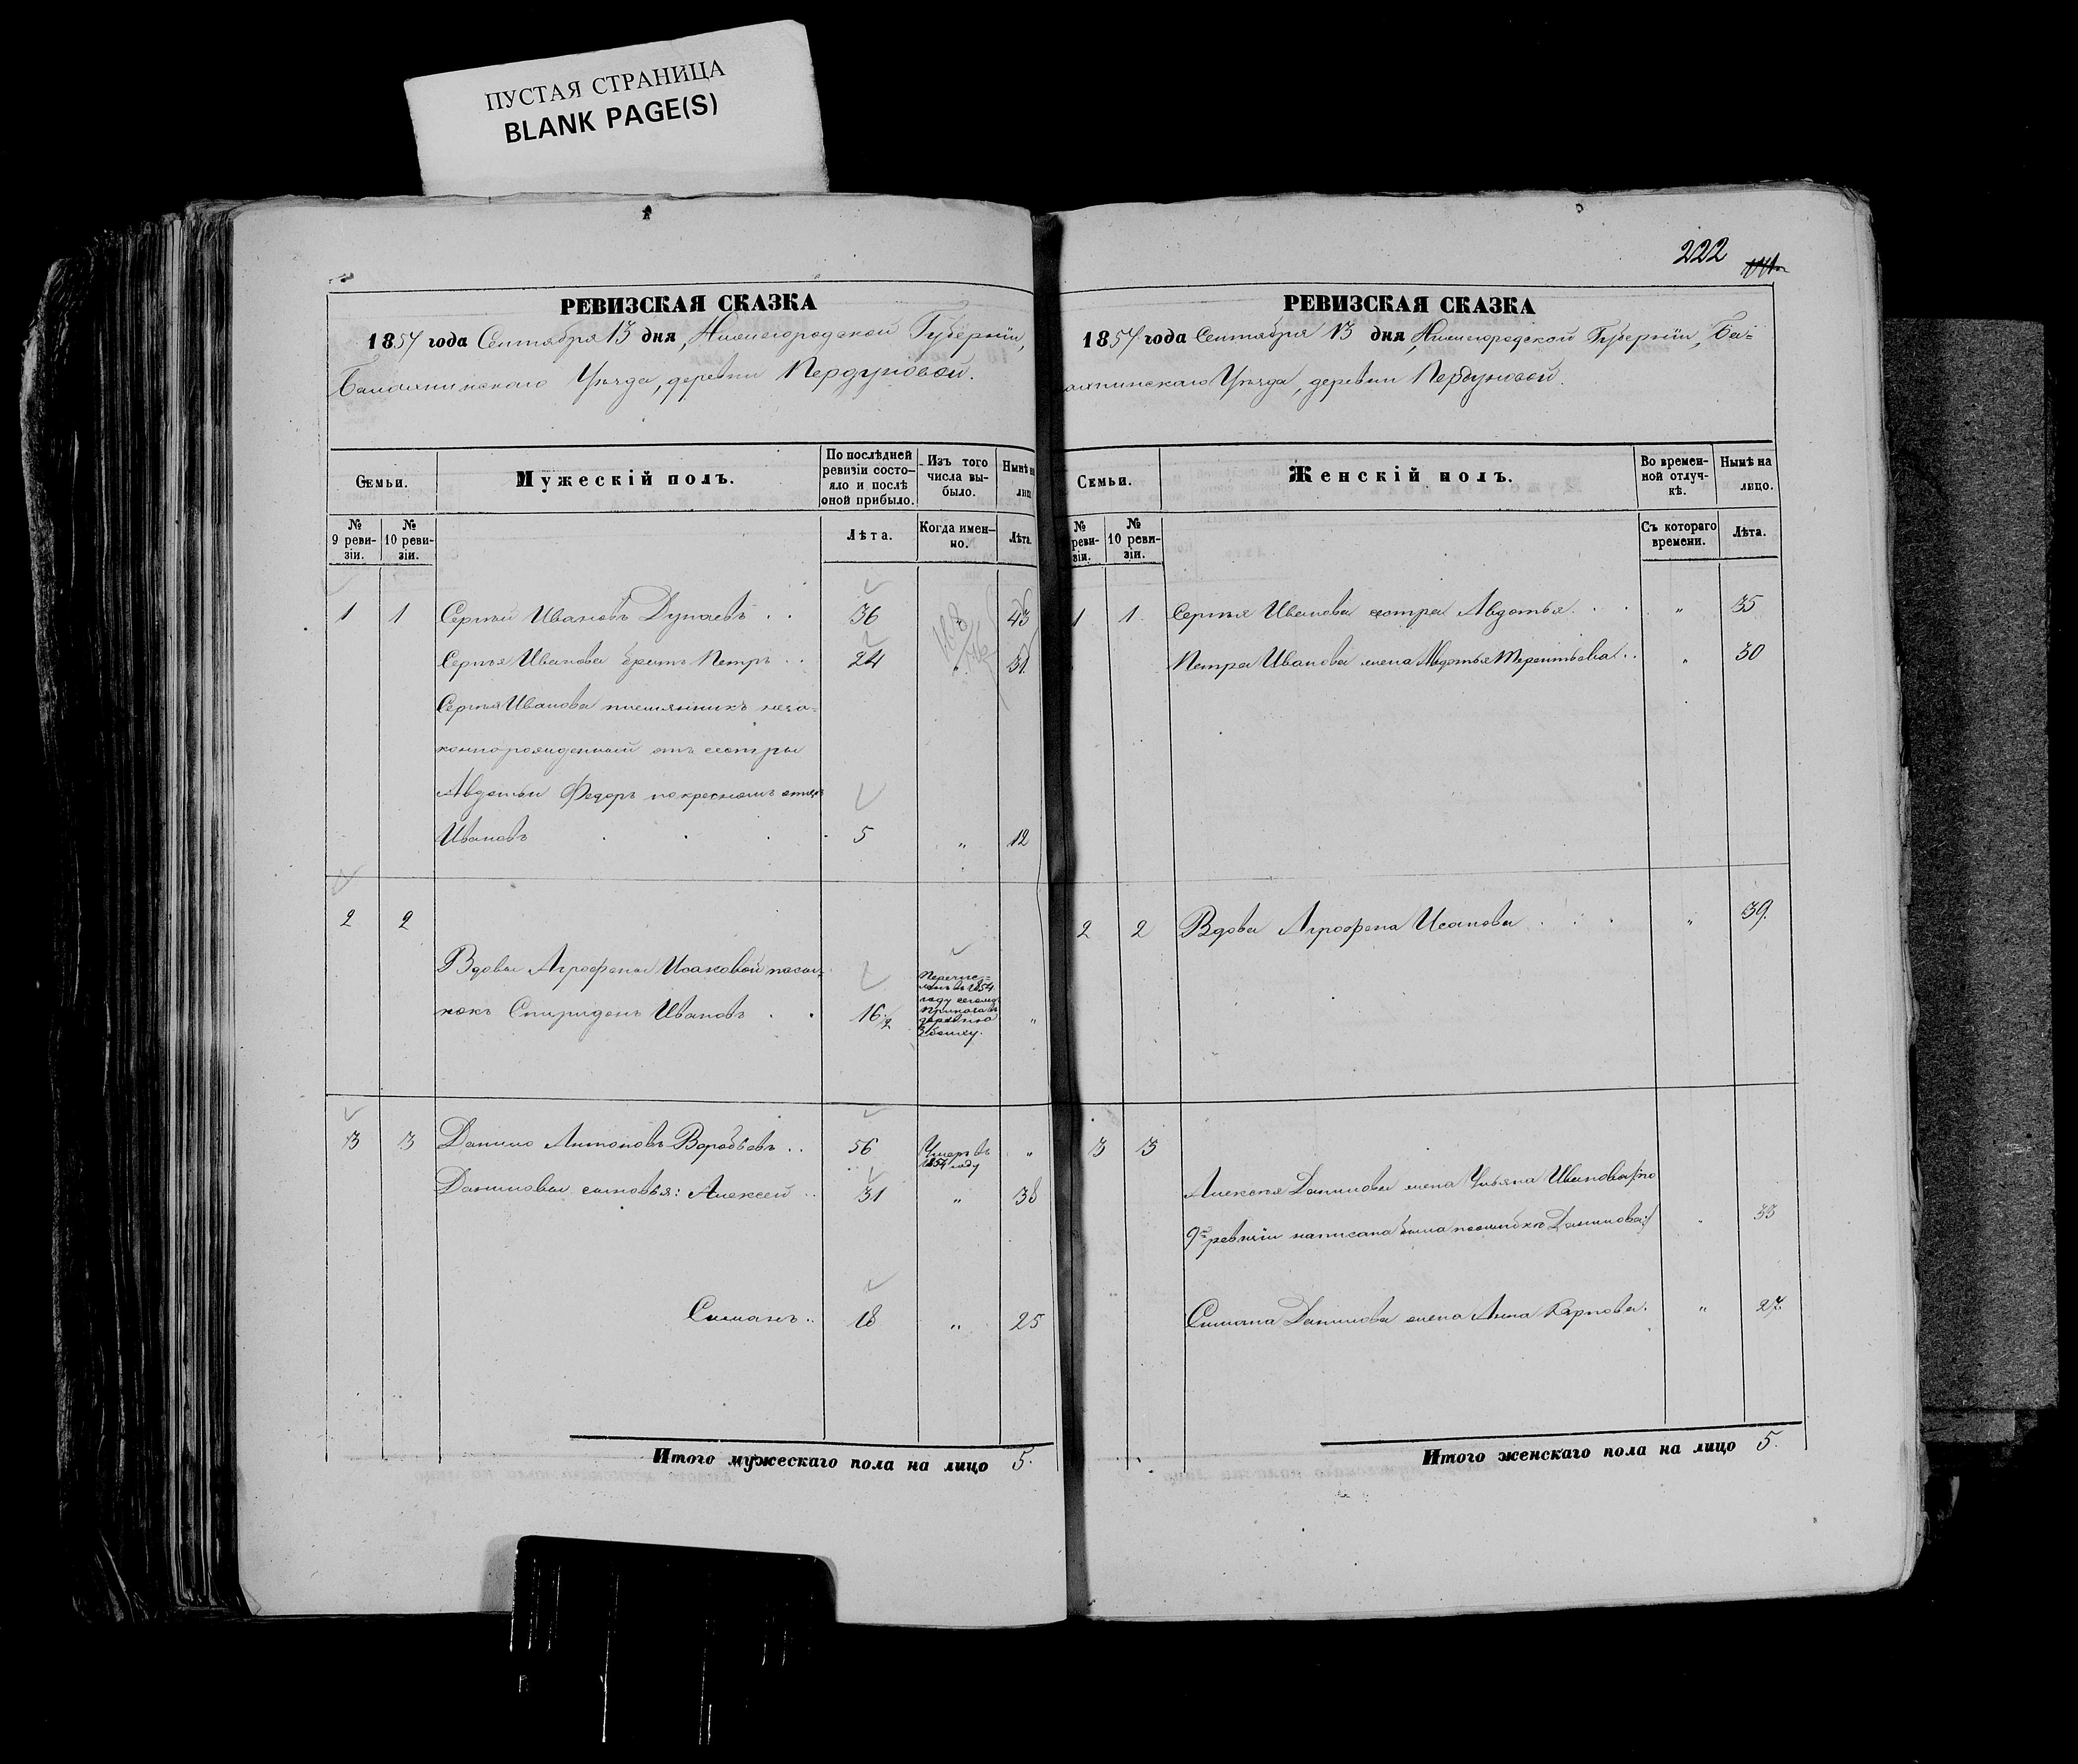 ПУСТАЯ СТРАНИЦА
BLANK PAGE(S)
РЕВИЗСКАЯ СКАЗКА
1857 года Сентября 13 дня, Нижегородской Губерніи,
Балахнинскаго Уѣзда, деревни Пердуновой.
Семьи.
Мужескій полъ.
По послѣдней ревизіи состояло и послѣ оной прибыло.
Изъ того числа выбыло.
Нынѣ на лиц
№ 9 ревизіи.
№ 10 ревизіи.
Лѣта.
Когда именно.
Лѣта.
1 1 Сергѣй Ивановъ Дунаевъ . . 36 43
Сергѣя Иванова братъ Петръ . . 24 „ 31
Сергѣя Иванова племянникъ неза=
коннорожденный отъ сестры
Авдотьи Федоръ по крестномъ отцѣ
Ивановъ . . . . 5 „ 12
2 2
Вдовы Агрофены Исаковой пасы=
нокъ Спиридонъ Ивановъ . . 16 1/2 „
Перечис=
ленъ въ 1854
году сегожъ
деревню
3 3 Данило Антоновъ Воробьевъ . . 56 Умеръ въ „
1854 году
Даниловы сыновья: Алексей . . 31 „ 38
Симанъ . . 18 „ 25
Итого мужескаго пола на лицо 5.
222
РЕВИЗСКАЯ СКАЗКА
1857 года Сентября 13 дня, Нижегородской Губерніи, Ба=
лахнинскаго Уѣзда, деревни Пердуновой.
Семьи.
Женскій полъ.
Во временной отлучкѣ.
Нынѣ на лицо.
№ реви-зіи.
№ 10 ревизіи.
Съ котораго времени.
Лѣта.
1 1. Сергѣя Иванова сестра Авдотья . . . „ 35
Петра Иванова жена Авдотья Терентьева . . „ 30
2 2 Вдова Агрофена Исакова . . . „ 39.
3 3
Алексѣя Данилова жена Ульяна Иванова /:по
9й ревизіи написана была поошибкѣ Данилова:/ „ 33
Симана Данилова жена Анна Карпова. „ 27.
Итого женскаго пола на лицо 5.